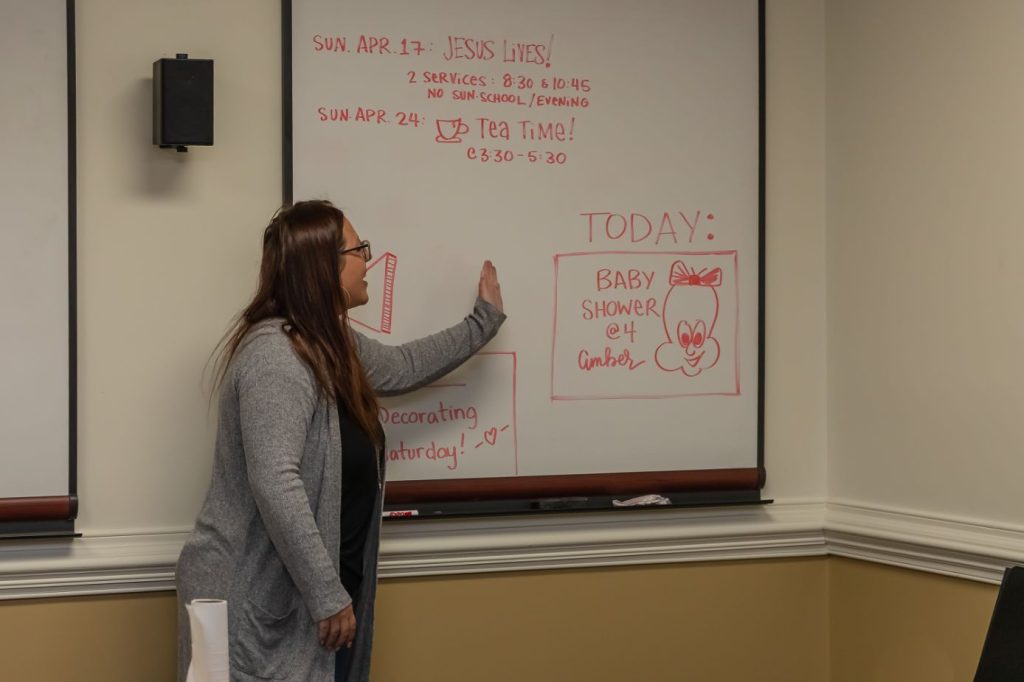 SUN. APR. 17: JESUS LIVES!
2 SERVICES: 8:30 & 10:45
NO SUN. SCHOOL/EVENING
SUN. APR. 24: TEA TIME!
@ 3:30-5:30
TODAY:
BABY
SHOWER
@ 4
amber
Decorating
aturday!
EXPO